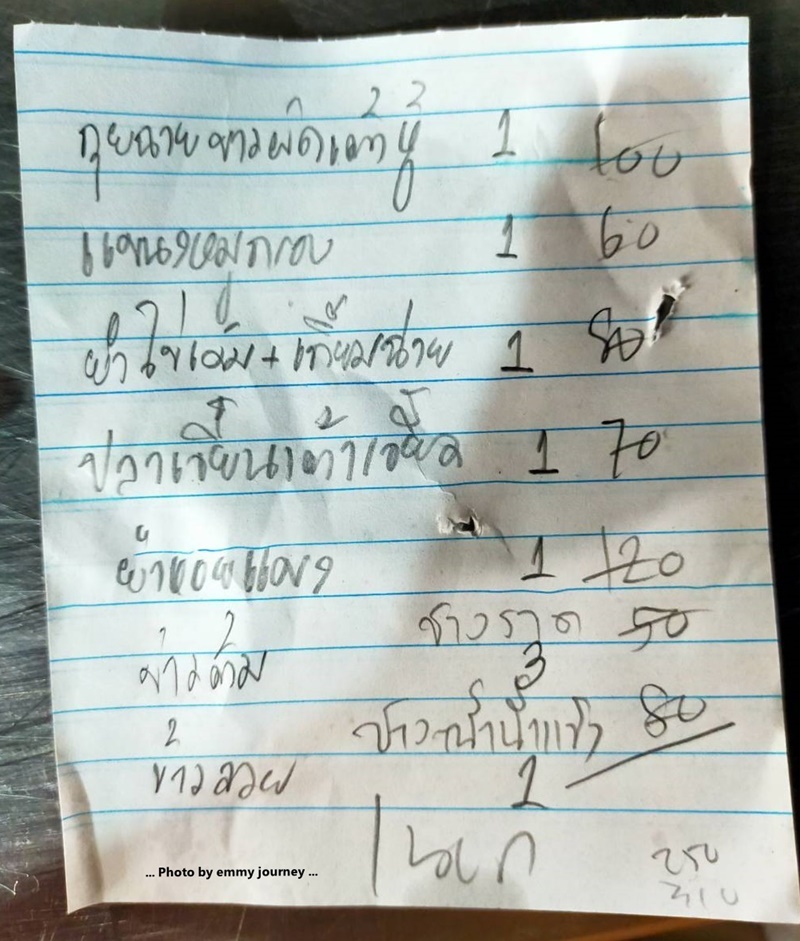 กุยฉายขาวผัดเต้าหู้ 1 100
แขนงหมูกรอบ 1 60
ยำไข่เค็ม + เกี้ยมฉ่าย 1 80
ปลาเจี๋ยนเต้าเจี้ยว 1 70
ยำหอยแมลง 1 120
50
ข้าวต้ม 3
80
ข้าวสวย 1
250
310
... Photo by emmy journey ...